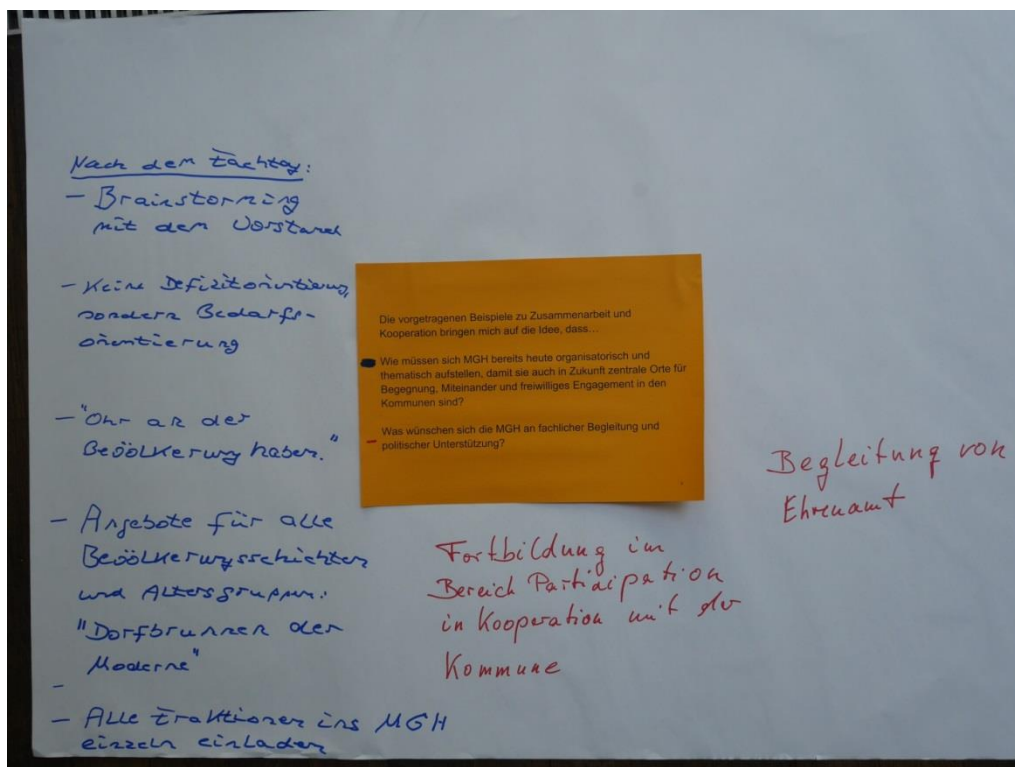 Nach dem Fachtag:
- Brainstorming
mit dem Vorstand
- Keine Defizitorientierung,
sondern Bedarfs-
orientierung
- "Ohr an der
Bevölkerung haben."
- Angebote für alle
Bevölkerungsschichten
und Altersgruppen:
"Dorfbrunnen der
Moderne"
-
- Alle Fraktionen ins MGH
einzeln einladen
Die vorgetragenen Beispiele zu Zusammenarbeit und
Kooperation bringen mich auf die Idee, dass…
Wie müssen sich MGH bereits heute organisatorisch und
thematisch aufstellen, damit sie auch in Zukunft zentrale Orte für
Begegnung, Miteinander und freiwilliges Engagement in den
Kommunen sind?
- Was wünschen sich die MGH an fachlicher Begleitung und
politischer Unterstützung?
Fortbildung im
Bereich Partizipation
in Kooperation mit der
Kommune
Begleitung von
Ehrenamt